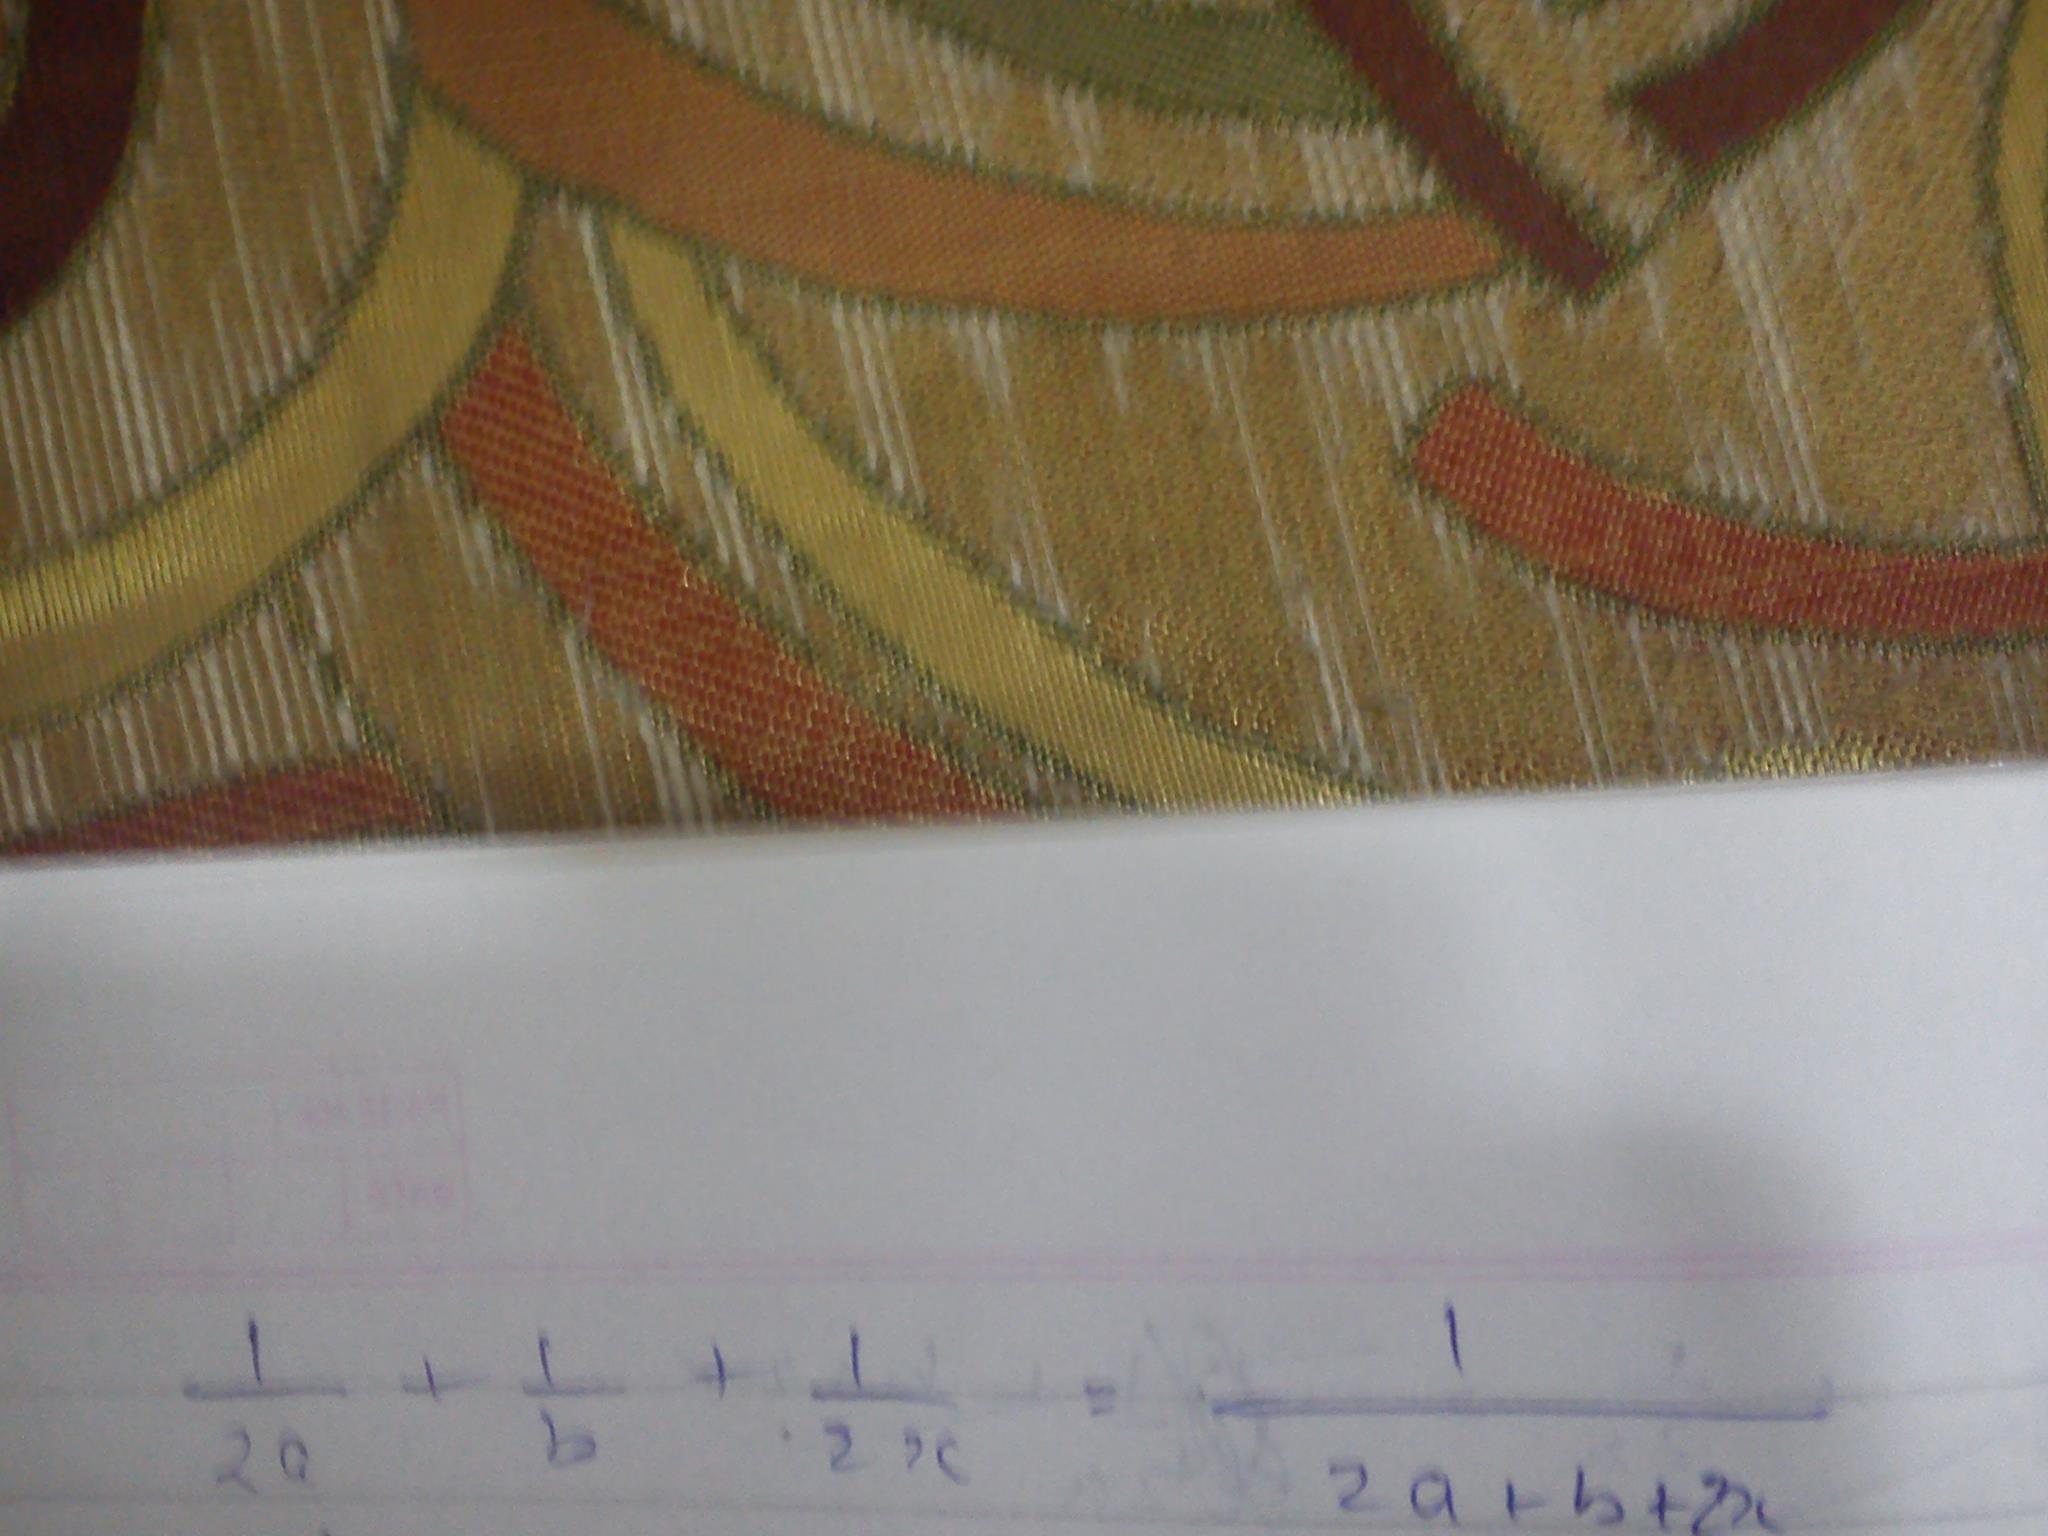 1/2a + 1/b + 1/2x = 1/(2a + b + 2x)